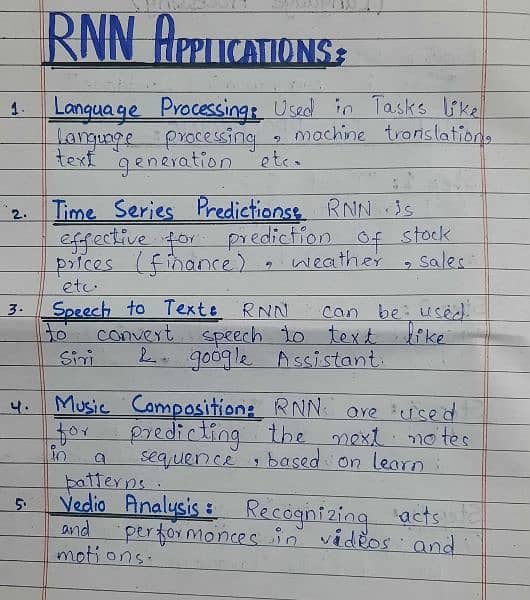 RNN APPLICATIONS:
1. Language Processing: Used in Tasks like
language processing, machine translation,
text generation etc.
2. Time Series Predictions: RNN is
effective for prediction of stock
prices (finance), weather, sales
etc.
3. Speech to Text: RNN can be used
to convert speech to text like
Siri & google Assistant.
4. Music Composition: RNN are used
for predicting the next notes
in a sequence, based on learn
patterns.
5. Vedio Analysis: Recognizing acts
and performances in videos and
motions.